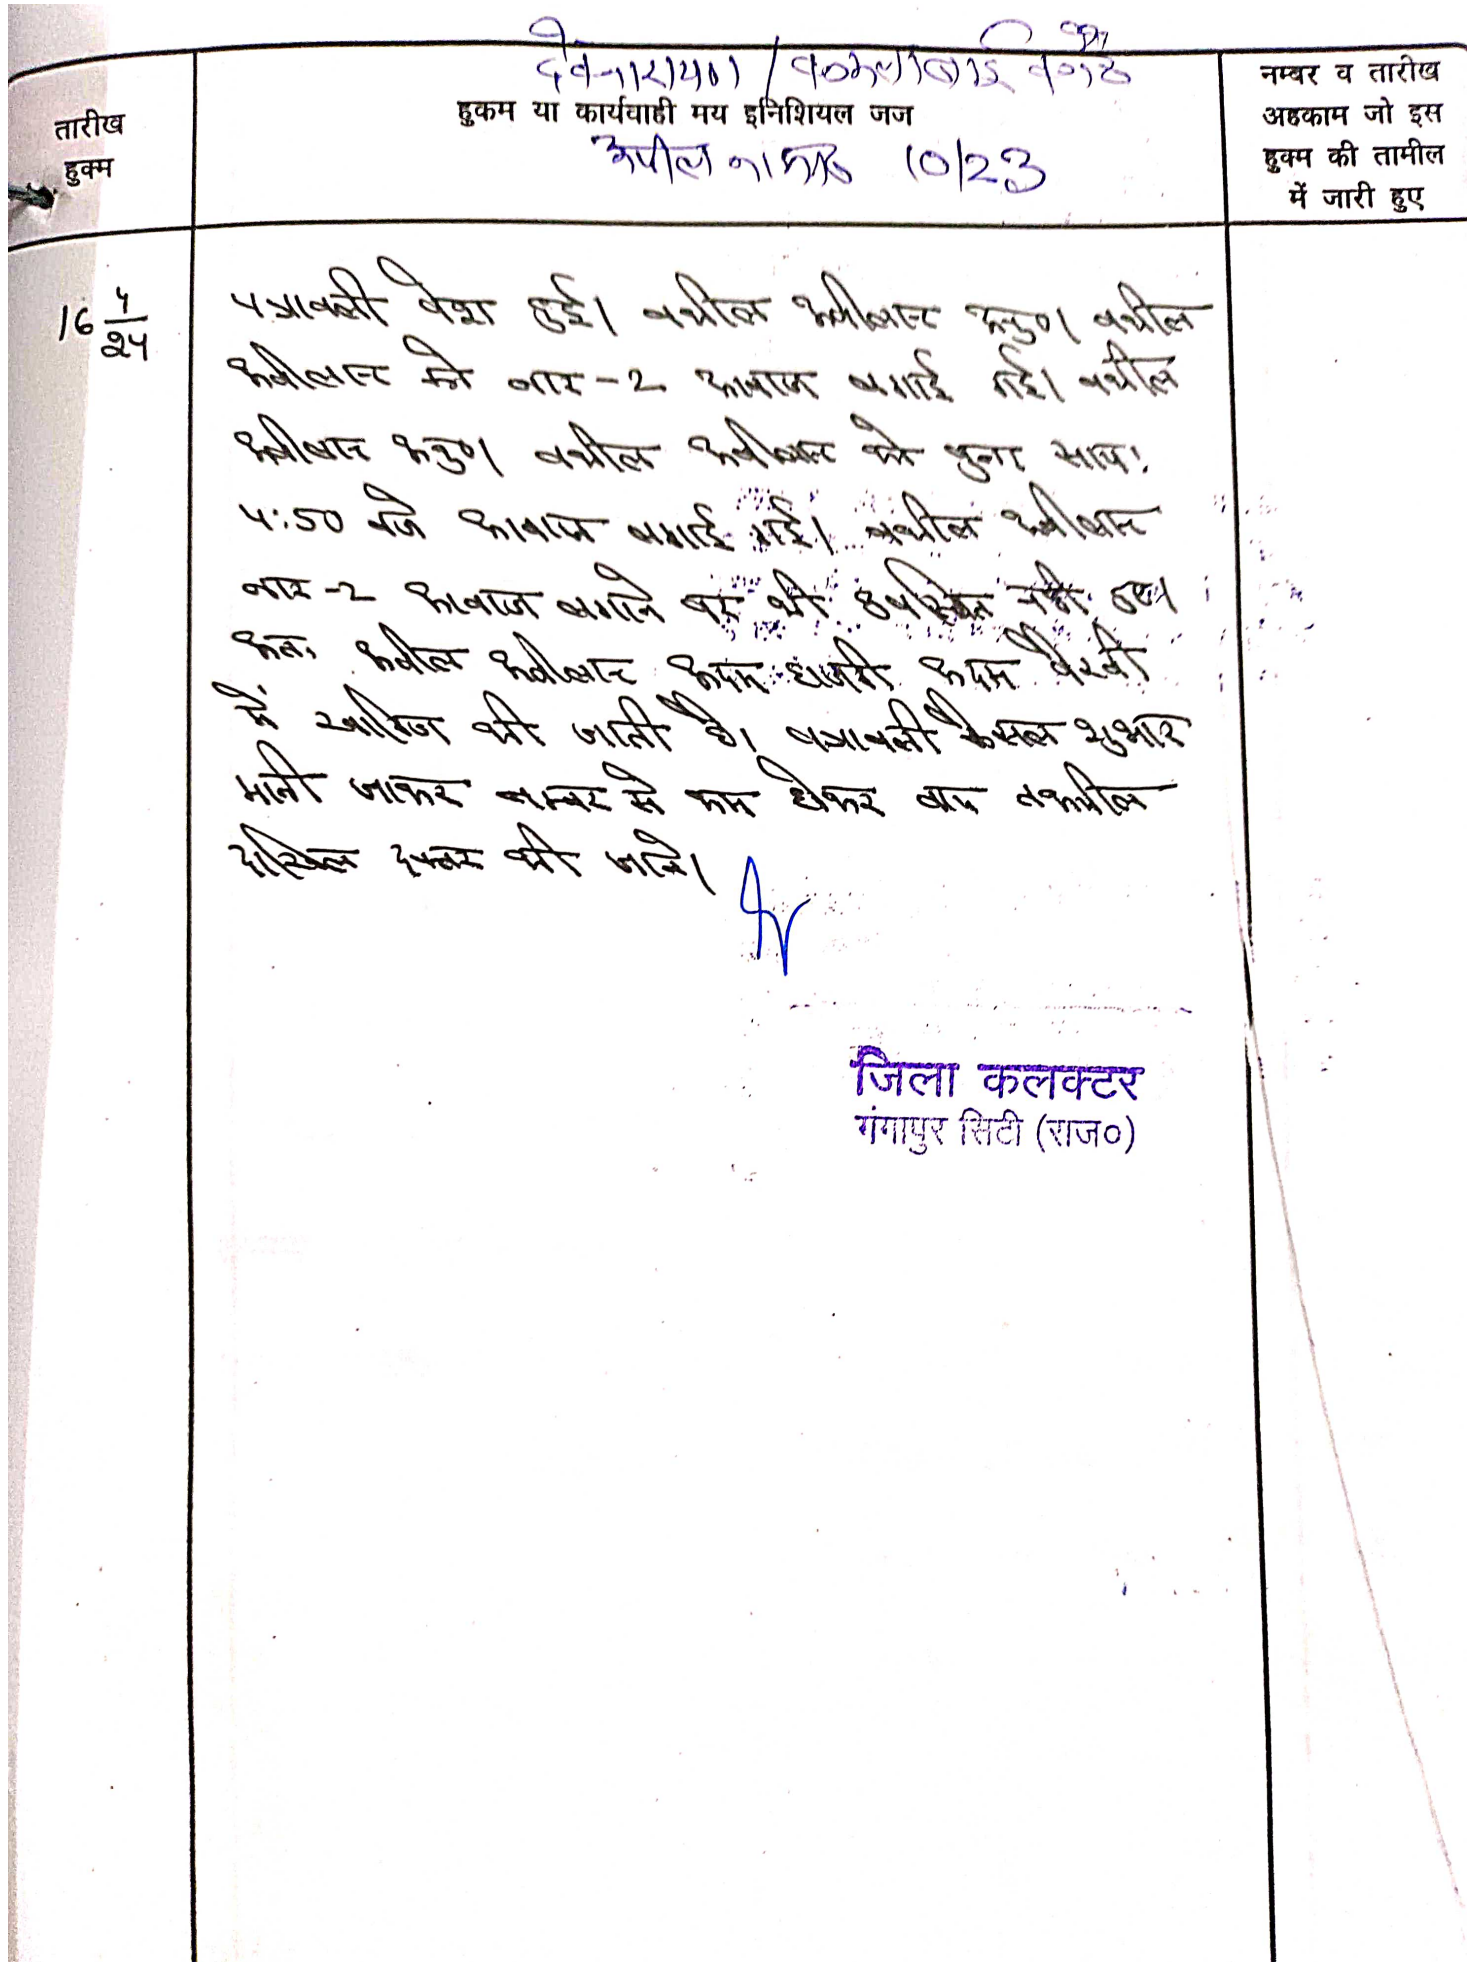 देवनारायण / कमलाबाई वगैरह
तारीख
हुक्म
हुकम या कार्यवाही मय इनिशियल जज
अपील नामा० 10/23
नम्बर व तारीख
अहकाम जो इस
हुक्म की तामील
में जारी हुए
16 4/24
पत्रावली पेश हुई। वकील अपीलान्ट अनु०। वकील
अपीलान्ट को बार-2 आवाज लगाई गई। वकील
अपीलान्ट अनु०। वकील अपीलान्ट को पुनः सायः
4:50 बजे आवाज लगाई गई। वकील अपीलान्ट
बार-2 आवाज लगाने पर भी उपस्थित नही हुए।
अतः अपील अपीलान्ट अदम हाजरी अदम पैरवी
में खारिज की जाती है। पत्रावली फैसल शुमार
मानी जाकर नम्बर से कम होकर बाद तकमील
दाखिल दफ्तर की जावे।
जिला कलक्टर
गंगापुर सिटी (राज०)